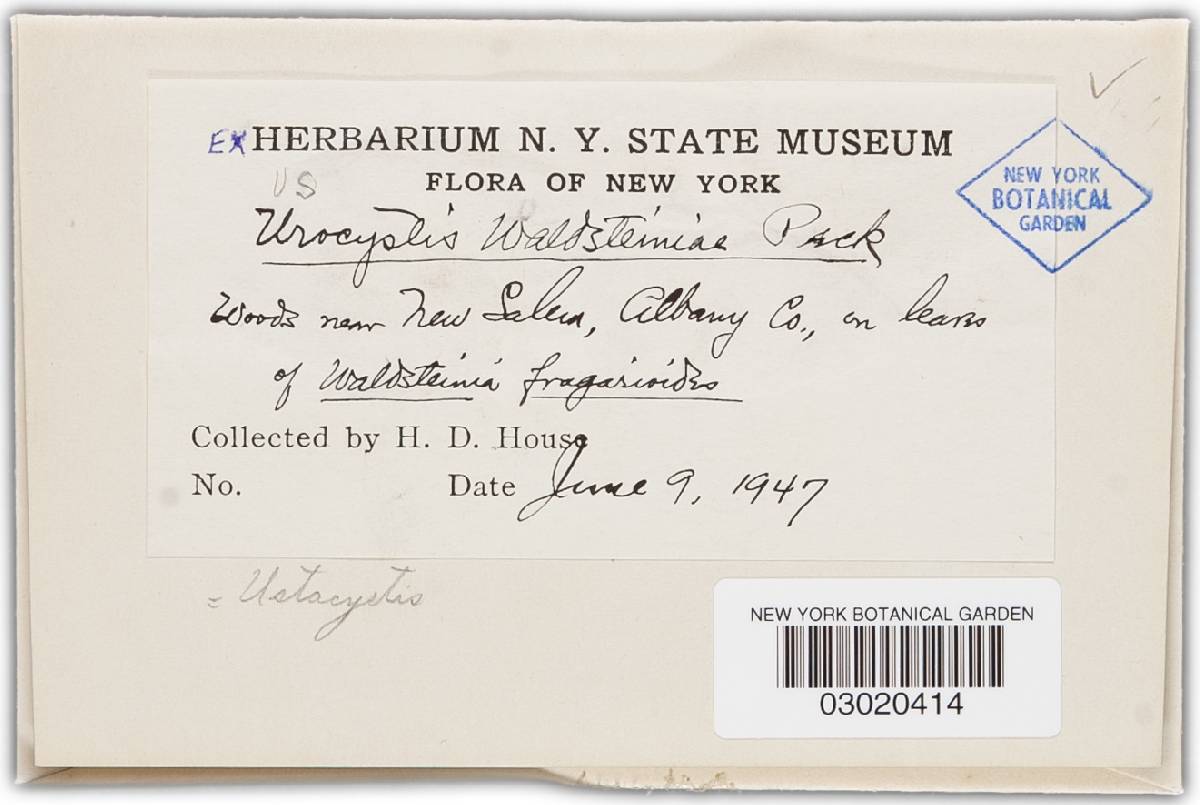 EX HERBARIUM N. Y. STATE MUSEUM
US
FLORA OF NEW YORK
Urocystis Waldsteiniae Peck
Woods near New Salem, Albany Co., on leaves
of Waldsteinia fragarioides
Collected by H. D. House
No. Date June 9, 1947
NEW YORK
BOTANICAL
GARDEN
= Ustacystis
NEW YORK BOTANICAL GARDEN
03020414